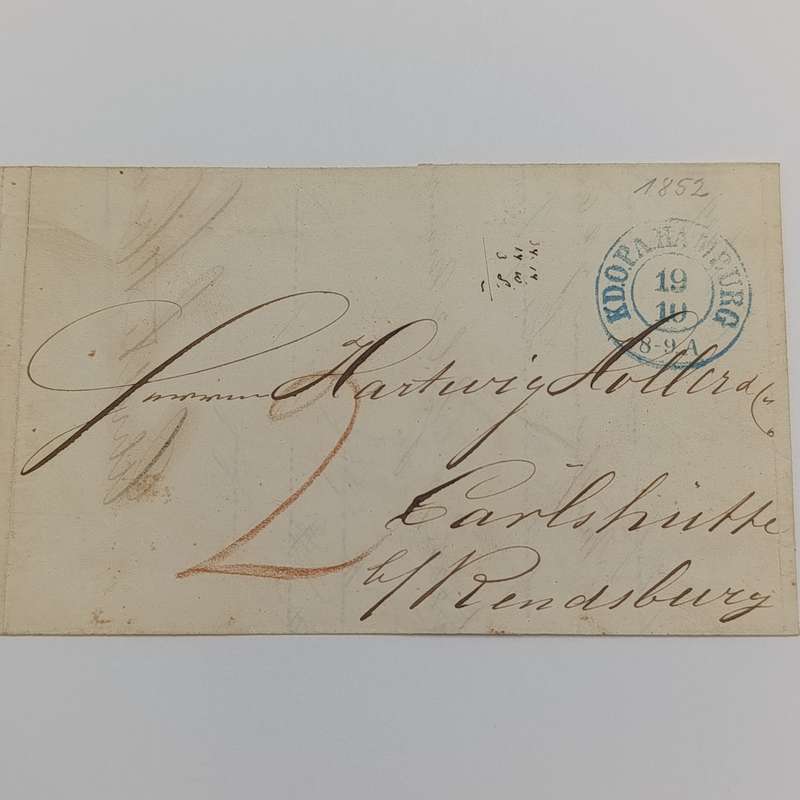 1852
K.D.O.P.A. HAMBURG
19
10
8-9 A
Herrn Hartwig Holler & Co
2
Carlshütte
b/ Rendsburg